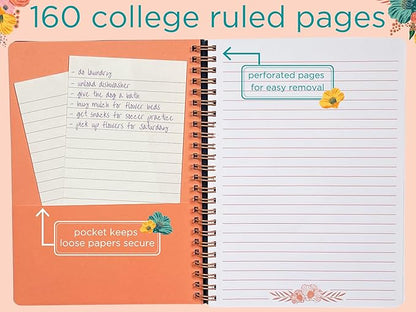 160 college ruled pages
- do laundry
- unload dishwasher
- give the dog a bath
- buy mulch for flower beds
- get snacks for soccer practice
- pick up flowers for Saturday
perforated pages
for easy removal
pocket keeps
loose papers secure